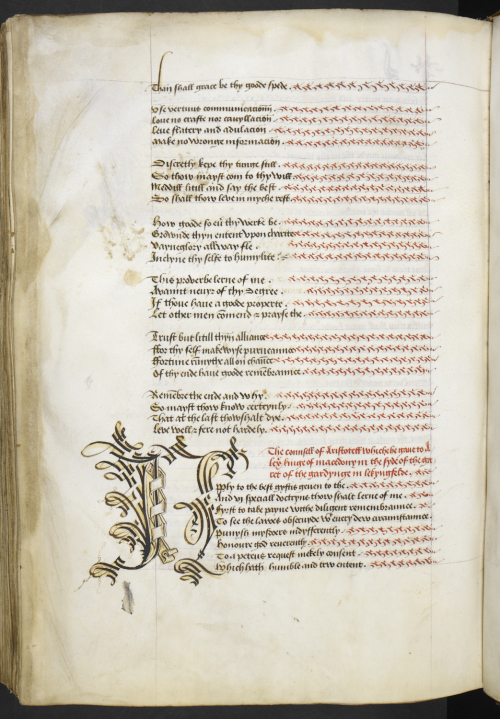 Than shall grace be thy goode spede.
Vse vertuus communicacioun
Loue no crafte nor cauyllacion
Leue flatery and adulacion
Make no wronge informacion.
Discretly kepe thy tunge still.
So thow mayst com to thy will
Meddill litill and say the best.
So shall thow leve in myche rest.
How goode so eu thy werke be.
Grownde thyn entent vpon charite
Vayneglory allway fle.
Inclyne thy selfe to humylite
This proverbe lerne of me.
Avaunt neuyr of thy Degree.
If thoue haue a goode properte.
Let other men comend & prayse the.
Trust but litill thyn alliance
ffor thy self make wyse purueannce
ffortune may the all on chance
Of thy ende haue goode remebrannce.
Remebre the ende and why.
So mayst thow know certeynly.
That at the last thow shalt dye.
Leve well & fere not hardely.
The counsell of Aristotell which he gaue to A
lex kynge of macedony in the syde of the ga
ret of the gardynge in
pply to the best gyftis geuen to the.
And in speciall doctryne thow shale lerne of me.
fyrst to take payne withe diligent remembrannce.
To see the lawes obseruyde euery dew circumstannce
Punysh mysdoers indyfferently.
Honoure god reuerently.
To a petens request mekely consent.
Which hath humble and trw entent.